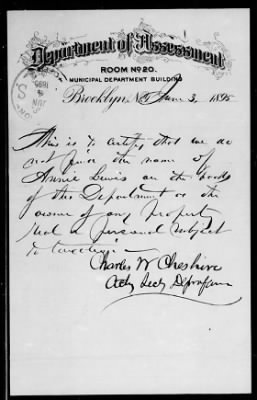 Department of Assessment
ROOM No 20.
MUNICIPAL DEPARTMENT BUILDING
Brooklyn, N.Y. June 3, 1895
This is to certify that we do
not find the name of
Annie Lewis on the books
of this Department as the
owner of any property
real or personal subject
to taxation
Charles W Cheshire
Actg Secy